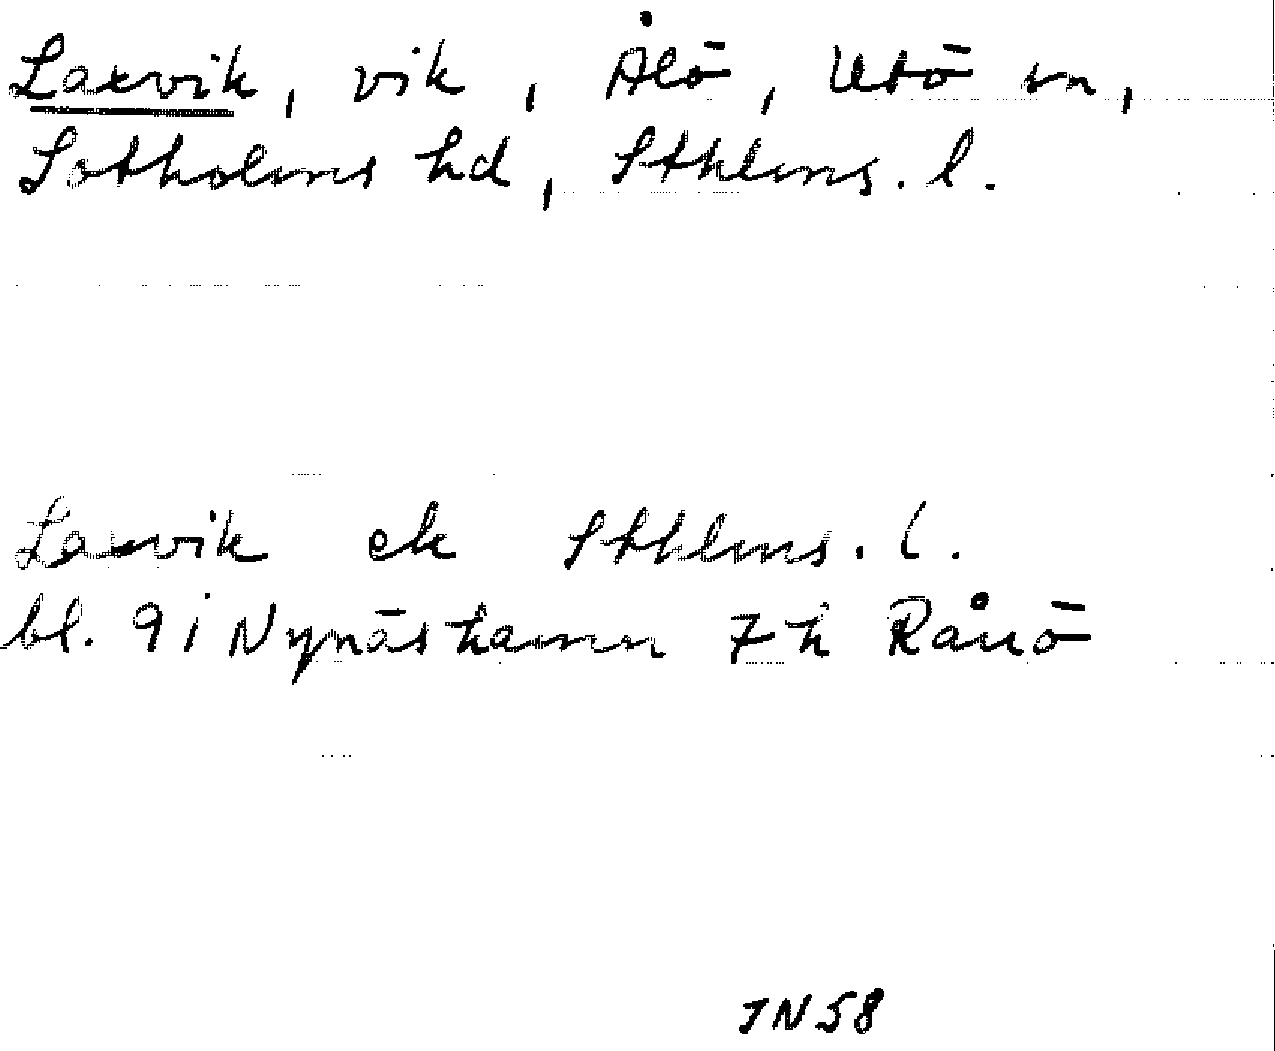 Laxvik, vik, Ålö, Utö sn,
Sotholms hd, Sthlms. l.
Laxvik ek Sthlms. l.
bl. 9i Nynäshamn 7h Rånö
JN58